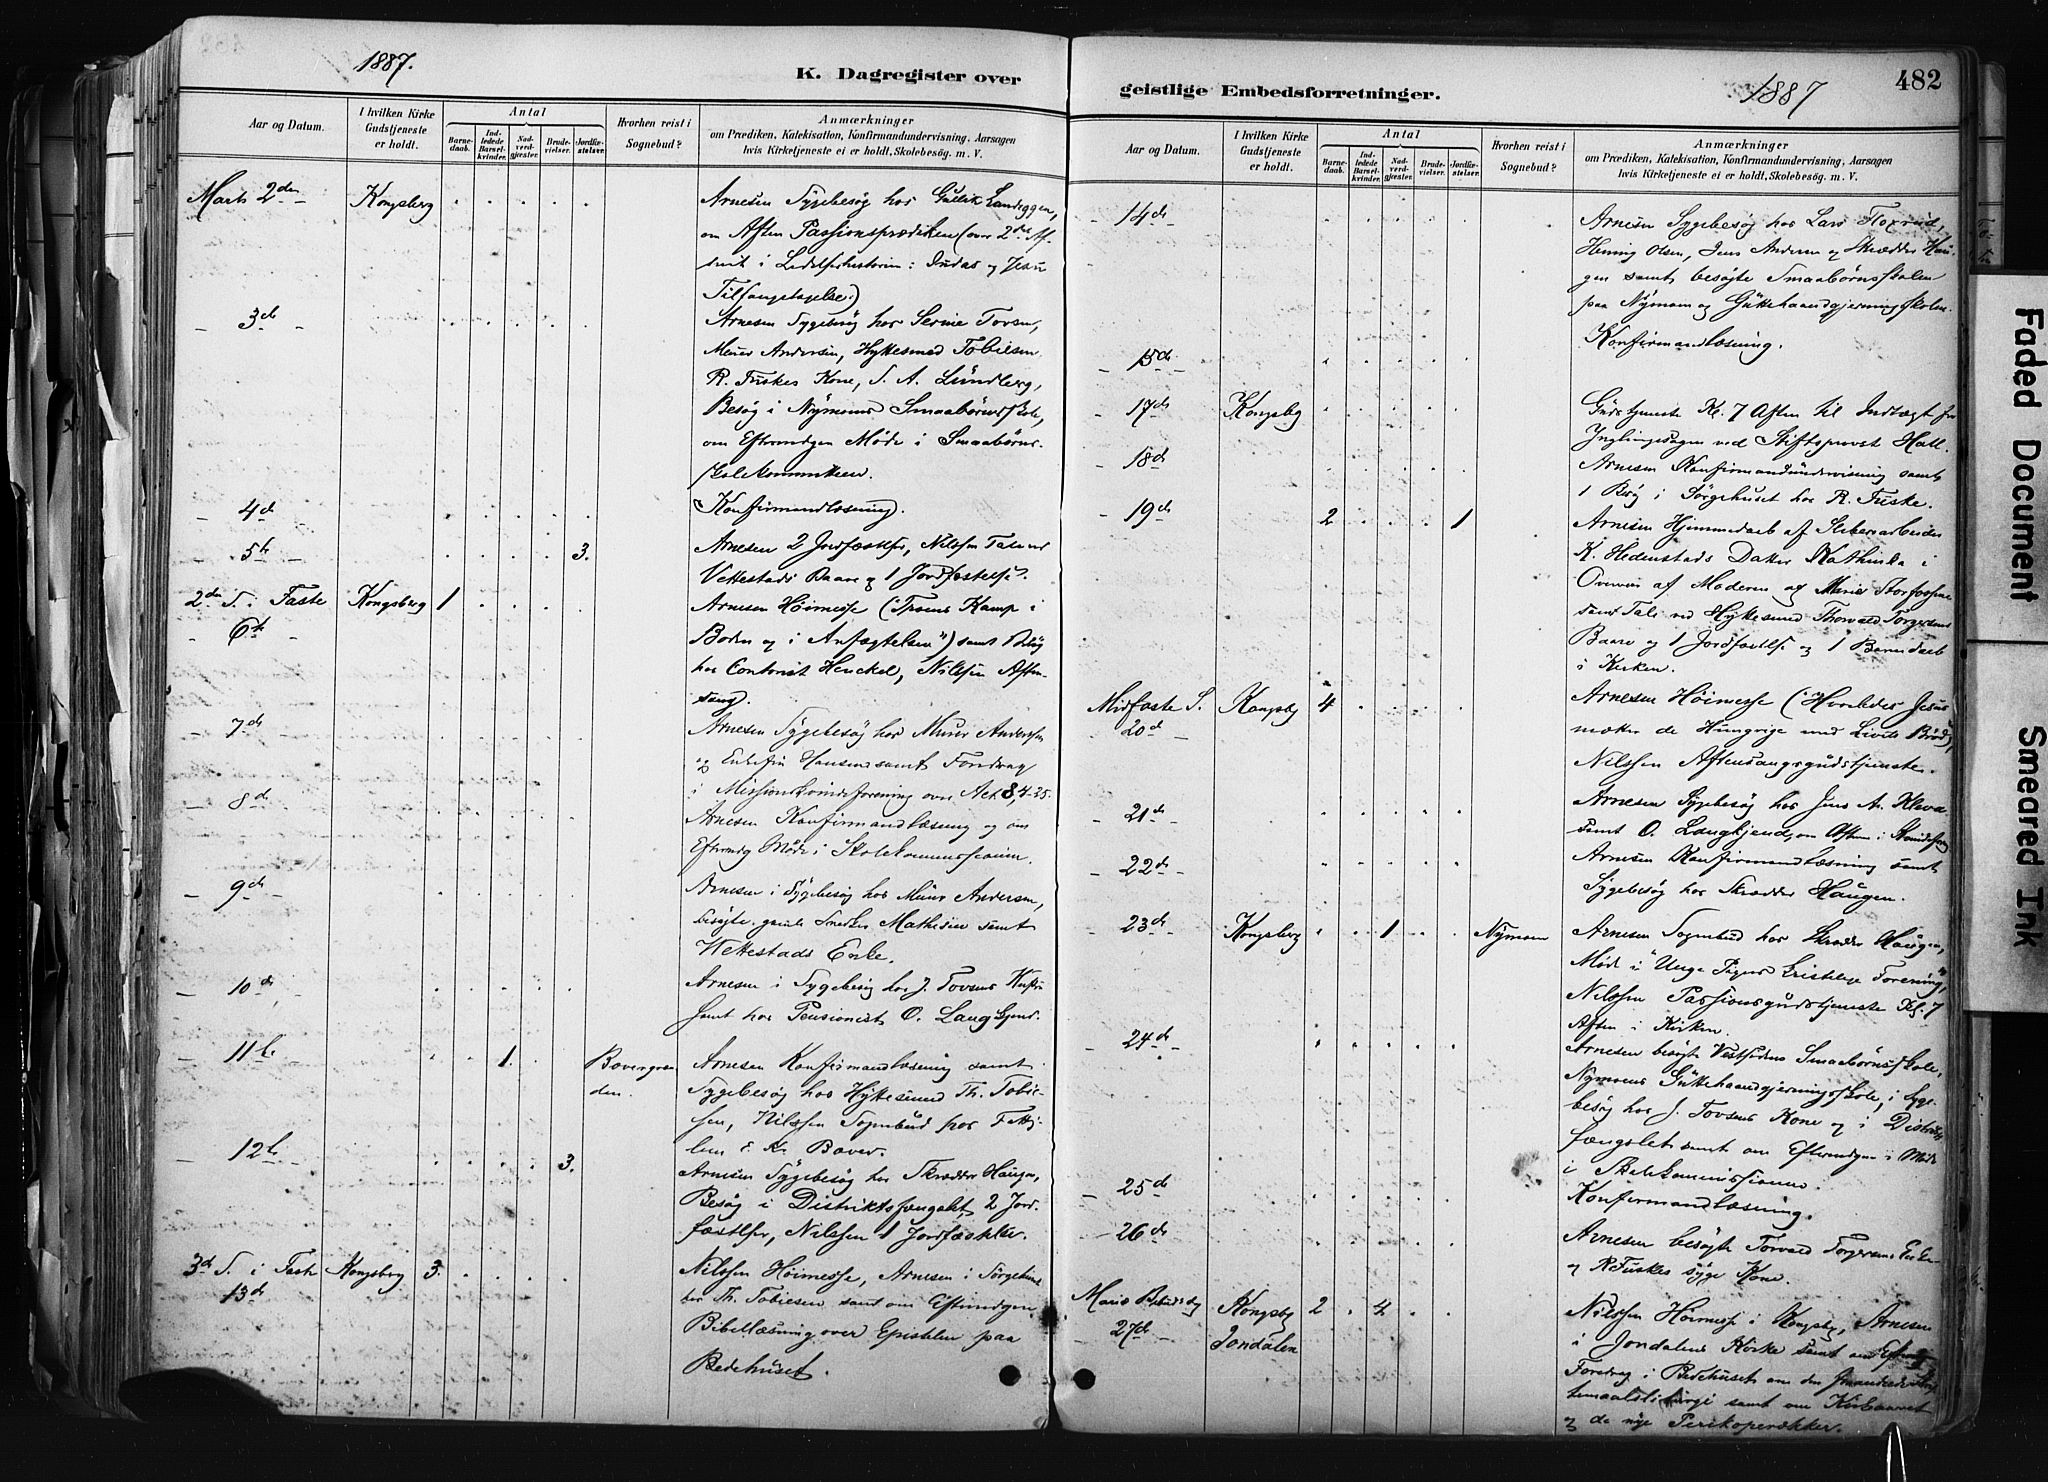 1887.
K. Dagregister over
Aar og Datum.
I hvilken Kirke
Gudstjeneste
er holdt.
Antal
Barne-
daab.
Ind-
ledede
Barsel-
kvinder.
Nad-
verd-
gjester.
Brude-
vielser.
Jordfæ-
stelser.
Hvorhen reist i
Sognebud?
Anmærkninger
om Prædiken, Katekisation, Konfirmandundervisning, Aarsagen
hvis Kirketjeneste ei er holdt, Skolebesøg. m. V.
Marts 2den Kongsberg
Arnesen Sygebesøg hos Gullik Landeggen,
om Aften Passionsprædiken (over 2det Af-
snit i Lidelseshistorien: Judas og Jesu
Tilfangetagelse.)
3de
Arnesen Sygebesøg hos Serine Tovsen,
Murer Andersen, Hyttesmed Tobiesen
R. Fuskes Kone, S. A. Lundberg,
Besøg i Nymoens Smaabørnsskole,
om Eftermdgen Møde i Smaabørns-
skolekommiteen.
4de
Konfirmandlæsning.
5te 3.
Arnesen 2 Jordfæstelser, Nilssen Tale ved
Vettestads Baare og 1 Jordfæstelse.
2den S. i Faste Kongsberg 1
6te
Arnesen Høimesse (Troens Kamp i
Boden og i Anfægtelsen") samt Besøg
hos Contorist Henckel, Nilssen Aften-
sang.
7de
Arnesen Sygebesøg hos Murer Andersen
og Enkefru Hansen samt Foredrag
i Missionskvindeforening over Act 8,4-25.
8de
Arnesen Konfirmandlæsning og om
Eftermdg Møde i Skolekommissionen.
9de
Arnesen i Sygebesøg hos Murer Andersen,
besøgte gamle Snedker Mathisen samt
Wettestads Enke.
10de
Arnesen i Sygebesøg hos J. Tovsens Hustru
samt hos Pensionist O. Langkjend.
11te 1. Bævergran-
den.
Arnesen Konfirmandlæsning samt
Sygebesøg hos Hyttesmed Th. Tobie-
sen, Nilssen Sognebud hos Fattig-
lem E. K. Bæver.
12te 3.
Arnesen Sygebesøg hos Skrædder Haugen,
Besøg i Distriktsfængslet, 2 Jord-
fæstelser, Nilssen 1 Jordfæstelse.
3de S. i Faste Kongsberg 3.
13de
Nilssen Høimesse, Arnesen i Sørgehuset
hos Th. Tobiesen samt om Eftermdgen
Bibellæsning over Epistelen paa
Bedehuset.
geistlige Embedsforretninger.
1887
482
Aar og Datum.
I hvilken Kirke
Gudstjeneste
er holdt.
Antal
Barne-
daab.
Ind-
ledede
Barsel-
kvinder.
Nad-
verd-
gjester.
Brude-
vielser.
Jordfæ-
stelser.
Hvorhen reist i
Sognebud?
Anmærkninger
om Prædiken, Katekisation, Konfirmandundervisning, Aarsagen
hvis Kirketjeneste ei er holdt, Skolebesøg. m. V.
14de
Arnesen Sygebesøg hos Lars
Henning Olsen, Jens Andersen og Skrædder Hau-
gen samt besøgte Smaabørnsskolen
paa Nymoen og Guttehaandgjerningsskolen.
15de
Konfirmandlæsning.
17de Kongsbg
Gudstjeneste Kl. 7 Aften til Indtægt for
Ynglingesagen ved Stiftsprovst Hall.
18de
Arnesen Konfirmandundervisning samt
1 Besøg i Sørgehuset hos R. Fuske.
19de 2 1
Arnesen Hjemmedaab af Sliberarbeider
K. Hedenstads Datter Kathinka i
Overvær af Moderen og Marie Storfossen
samt Tale ved Hyttesmed Thorvald Torgersens
Baare og 1 Jordfæstelse og 1 Barnedaab
i Kirken.
Midfaste S. Kongsbg 4
20de
Arnesen Høimesse ("Hvorledes Jesus
mætter de Hungrige med Livets Brød),
Nilssen Aftensangsgudstjeneste.
21de
Arnesen Sygebesøg hos Jens A. Kleva
samt O. Langkjend, om Aftenen i
22de
Arnesen Konfirmandlæsning samt
Sygebesøg hos Skrædder Haugen.
23de Kongsberg 1 Nymoen
Arnesen Sognebud hos Skrædder Haugen,
Møde i "Unge Pigers kristelige Forening",
Nilssen Passionsgudstjeneste Kl. 7
Aften i Kirken.
24de
Arnesen besøgte Vestsidens Smaabørnsskole,
Nymoens Guttehaandgjerningsskole, i Syge-
besøg hos J. Tovsens Kone og i Distrikts-
fængslet samt om Eftermdgen i Møde
i Skolekommissionen.
25de
Konfirmandlæsning.
26de
Arnesen besøgte Torvald Torgersens Enke
og R Fuskes syge Kone.
Mariæ Bebudsdg Kongsbg 2 4
27de Jondalen
Nilssen Høimesse i Kongsbg, Arnesen
i Jondalens Kirke samt om Eftmdg
Foredrag i Bedehuset om den
samt om Kirkeaaret
og de nye Perikoperækker.
Faded Document
Smeared Ink